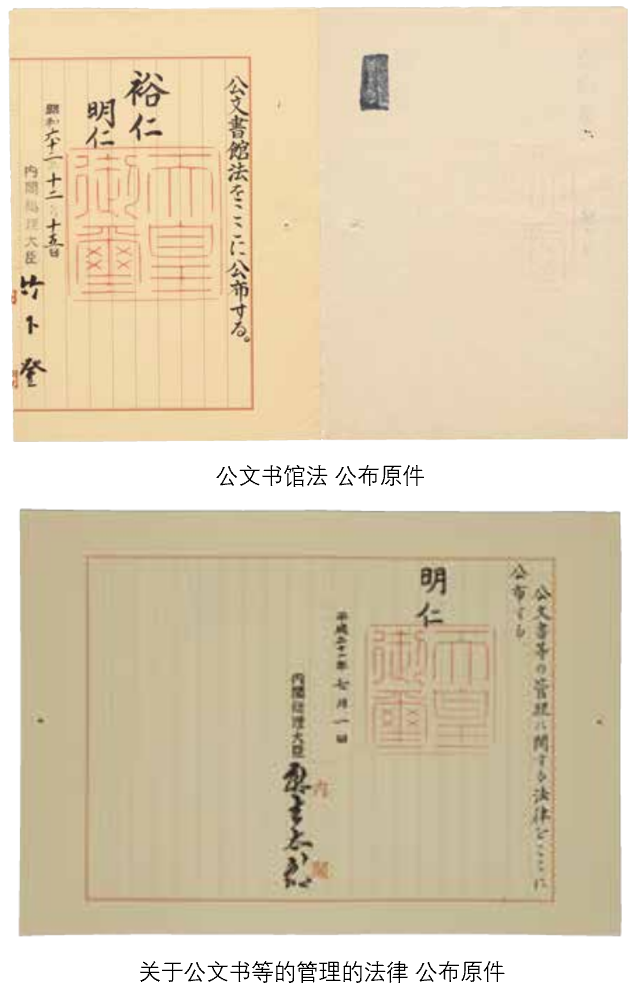 公文書館法をここに公布する。
裕仁
明仁
天皇
御璽
昭和六十二年十二月十五日
内閣総理大臣 竹下登
公文书馆法 公布原件
公文書等の管理に関する法律をここに
公布する
明仁
天皇
御璽
平成二十一年七月一日
内閣総理大臣 麻生太郎
内閣
关于公文书等的管理的法律 公布原件